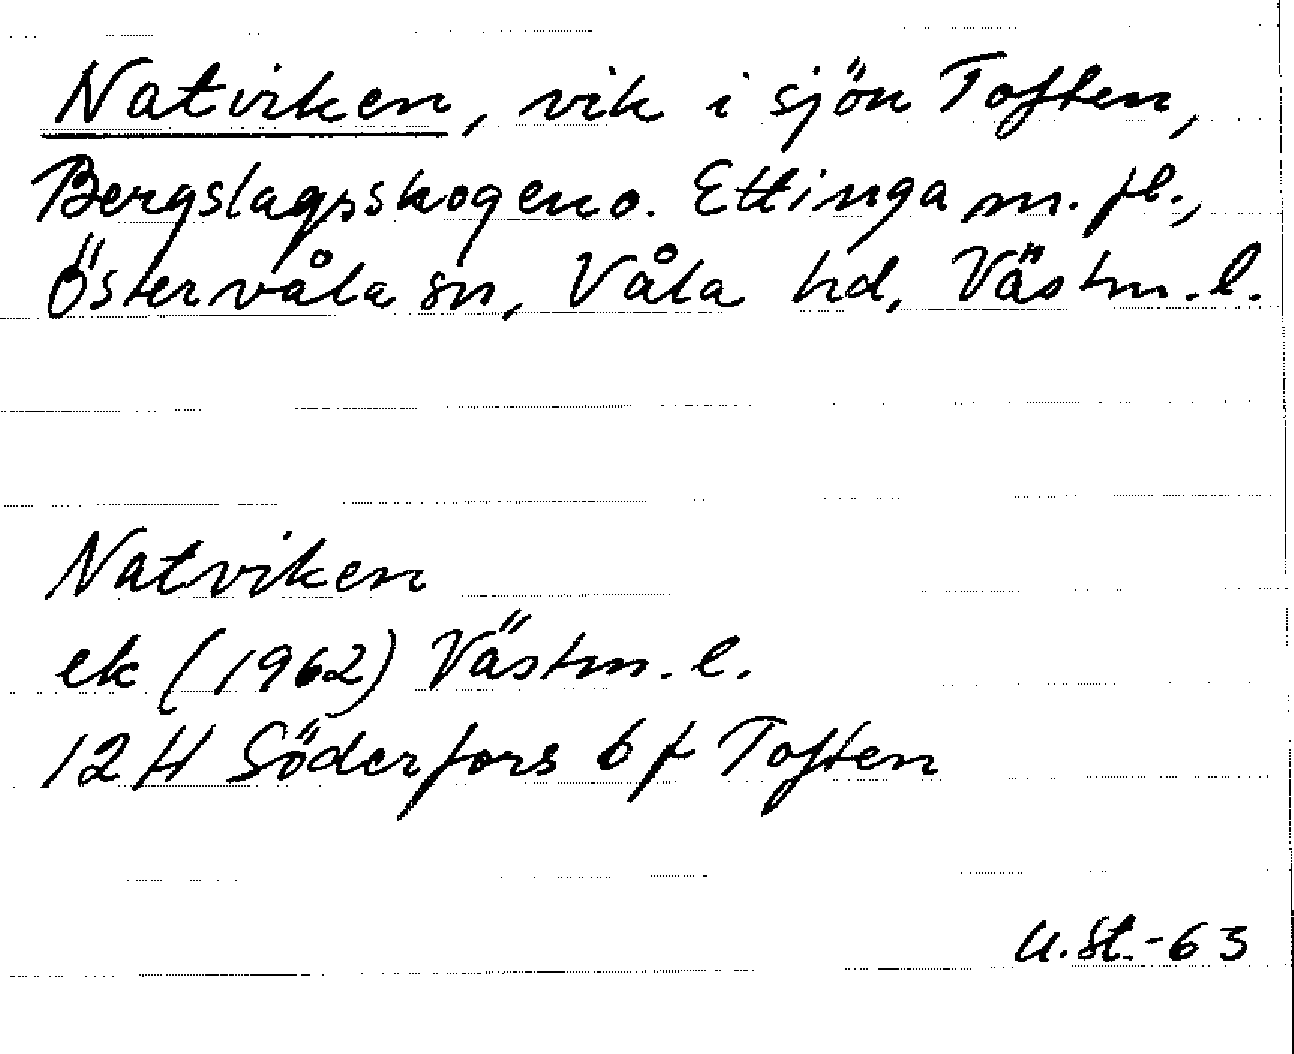 Natviken, vik i sjön Toften,
Bergslagsskogen o. Ettinga m. fl.,
Östervåla sn, Våla hd, Västm. l.
Natviken
ek (1962) Västm. l.
12 H Söderfors 6 f Toften
U. St. -63